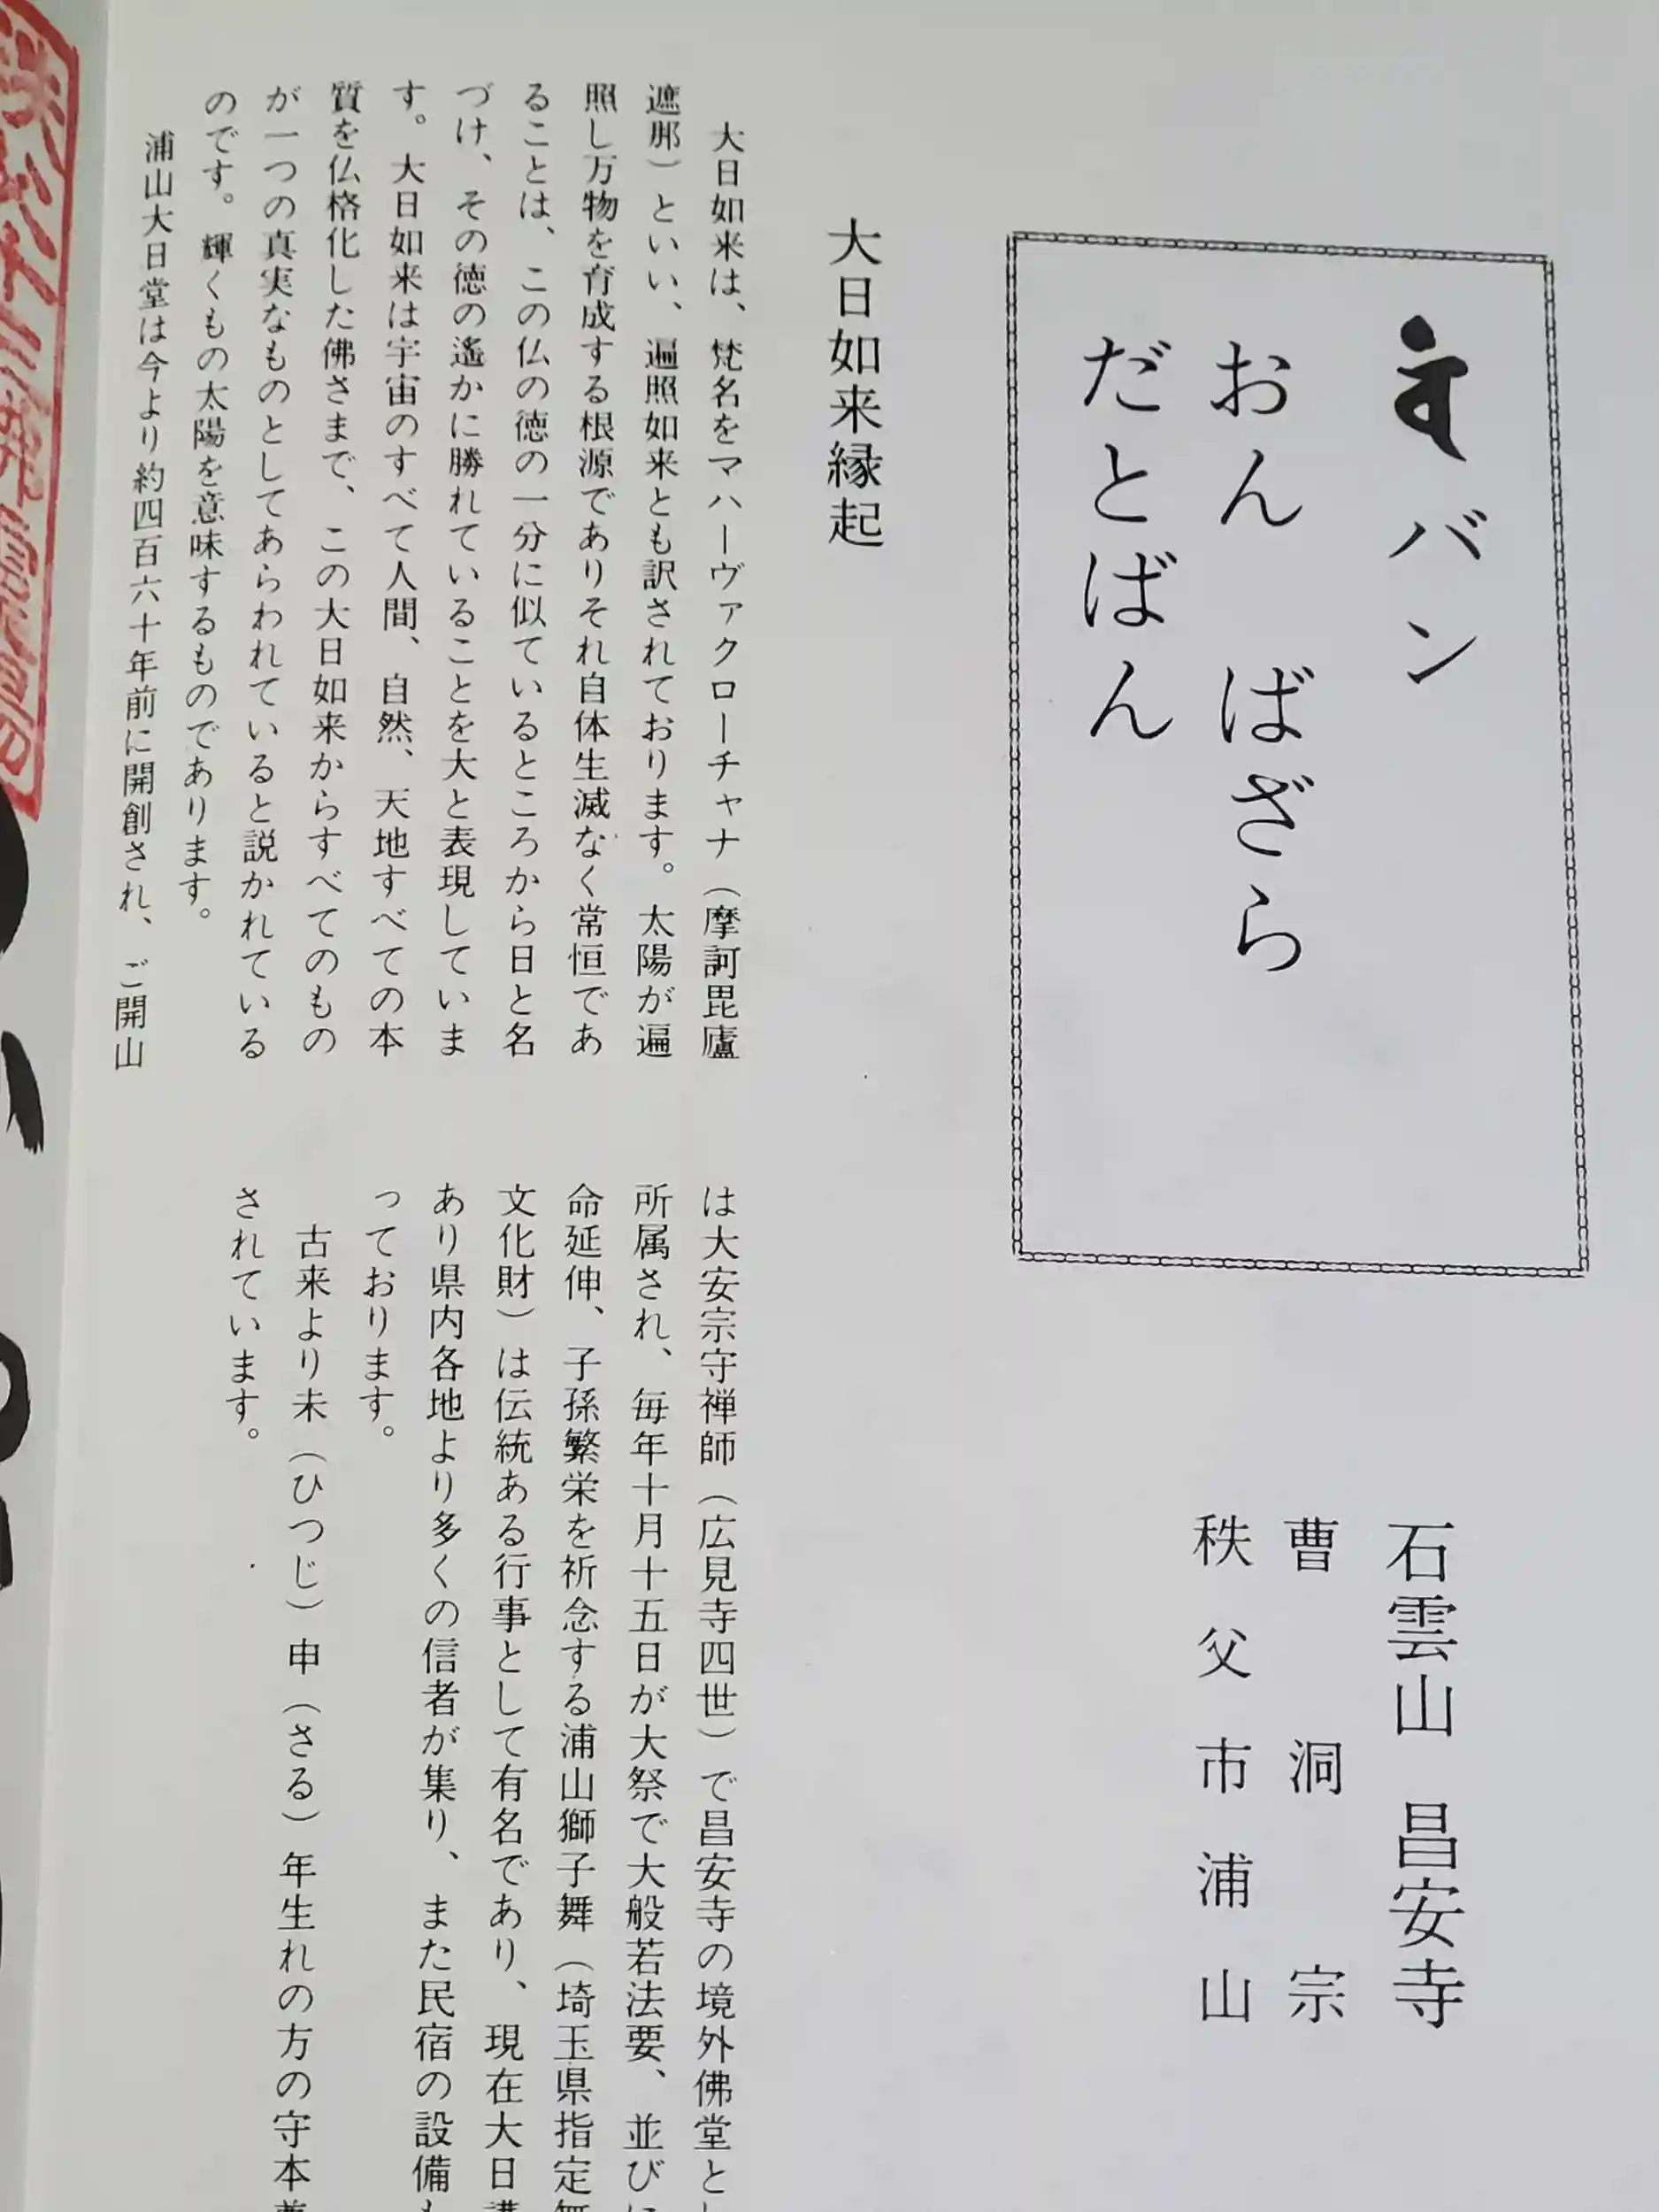 バン
おん ばざら
だとばん
石雲山 昌安寺
曹洞宗
秩父市浦山
大日如来縁起
大日如来は、梵名をマハーヴァクローチャナ（摩訶毘廬
遮那）といい、遍照如来とも訳されております。太陽が遍
照し万物を育成する根源でありそれ自体生滅なく常恒であ
ることは、この仏の徳の一分に似ているところから日と名
づけ、その徳の遙かに勝れていることを大と表現していま
す。大日如来は宇宙のすべて人間、自然、天地すべての本
質を仏格化した佛さまで、この大日如来からすべてのもの
が一つの真実なものとしてあらわれていると説かれている
のです。輝くもの太陽を意味するものであります。
浦山大日堂は今より約四百六十年前に開創され、ご開山
は大安宗守禅師（広見寺四世）で昌安寺の境外佛堂とし
所属され、毎年十月十五日が大祭で大般若法要、並びに
命延伸、子孫繁栄を祈念する浦山獅子舞（埼玉県指定無
文化財）は伝統ある行事として有名であり、現在大日講
あり県内各地より多くの信者が集り、また民宿の設備も
っております。
古来より未（ひつじ）申（さる）年生れの方の守本尊
されています。